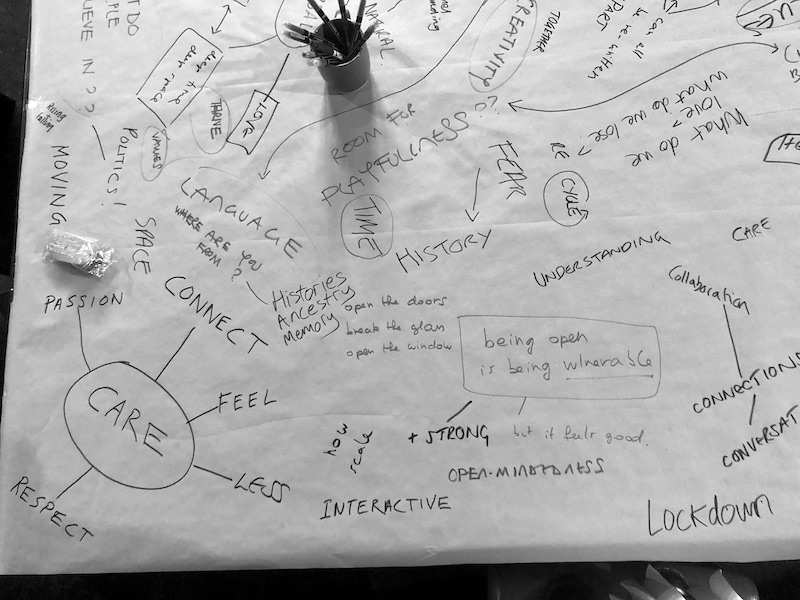 NATURAL
CREATIVITY
TOGETHER
PART
deep time
deep space
LOVE
THRIVE
VALUES
POLITICS!
MOVING
SPACE
ROOM FOR
PLAYFULNESS
What do we
love>
what do we lose?
FEAR
RE
CYCLE
TIME
HISTORY
LANGUAGE
WHERE ARE YOU
FROM?
Histories
Ancestry
Memory
open the doors
break the glass
open the window
UNDERSTANDING
CARE
Collaboration
CONNECTIONS
CONVERSAT
being open
is being vulnerable
+ STRONG
but it feels good.
OPEN-MINDEDNESS
how
scale
INTERACTIVE
Lockdown
PASSION
CONNECT
CARE
FEEL
LESS
RESPECT